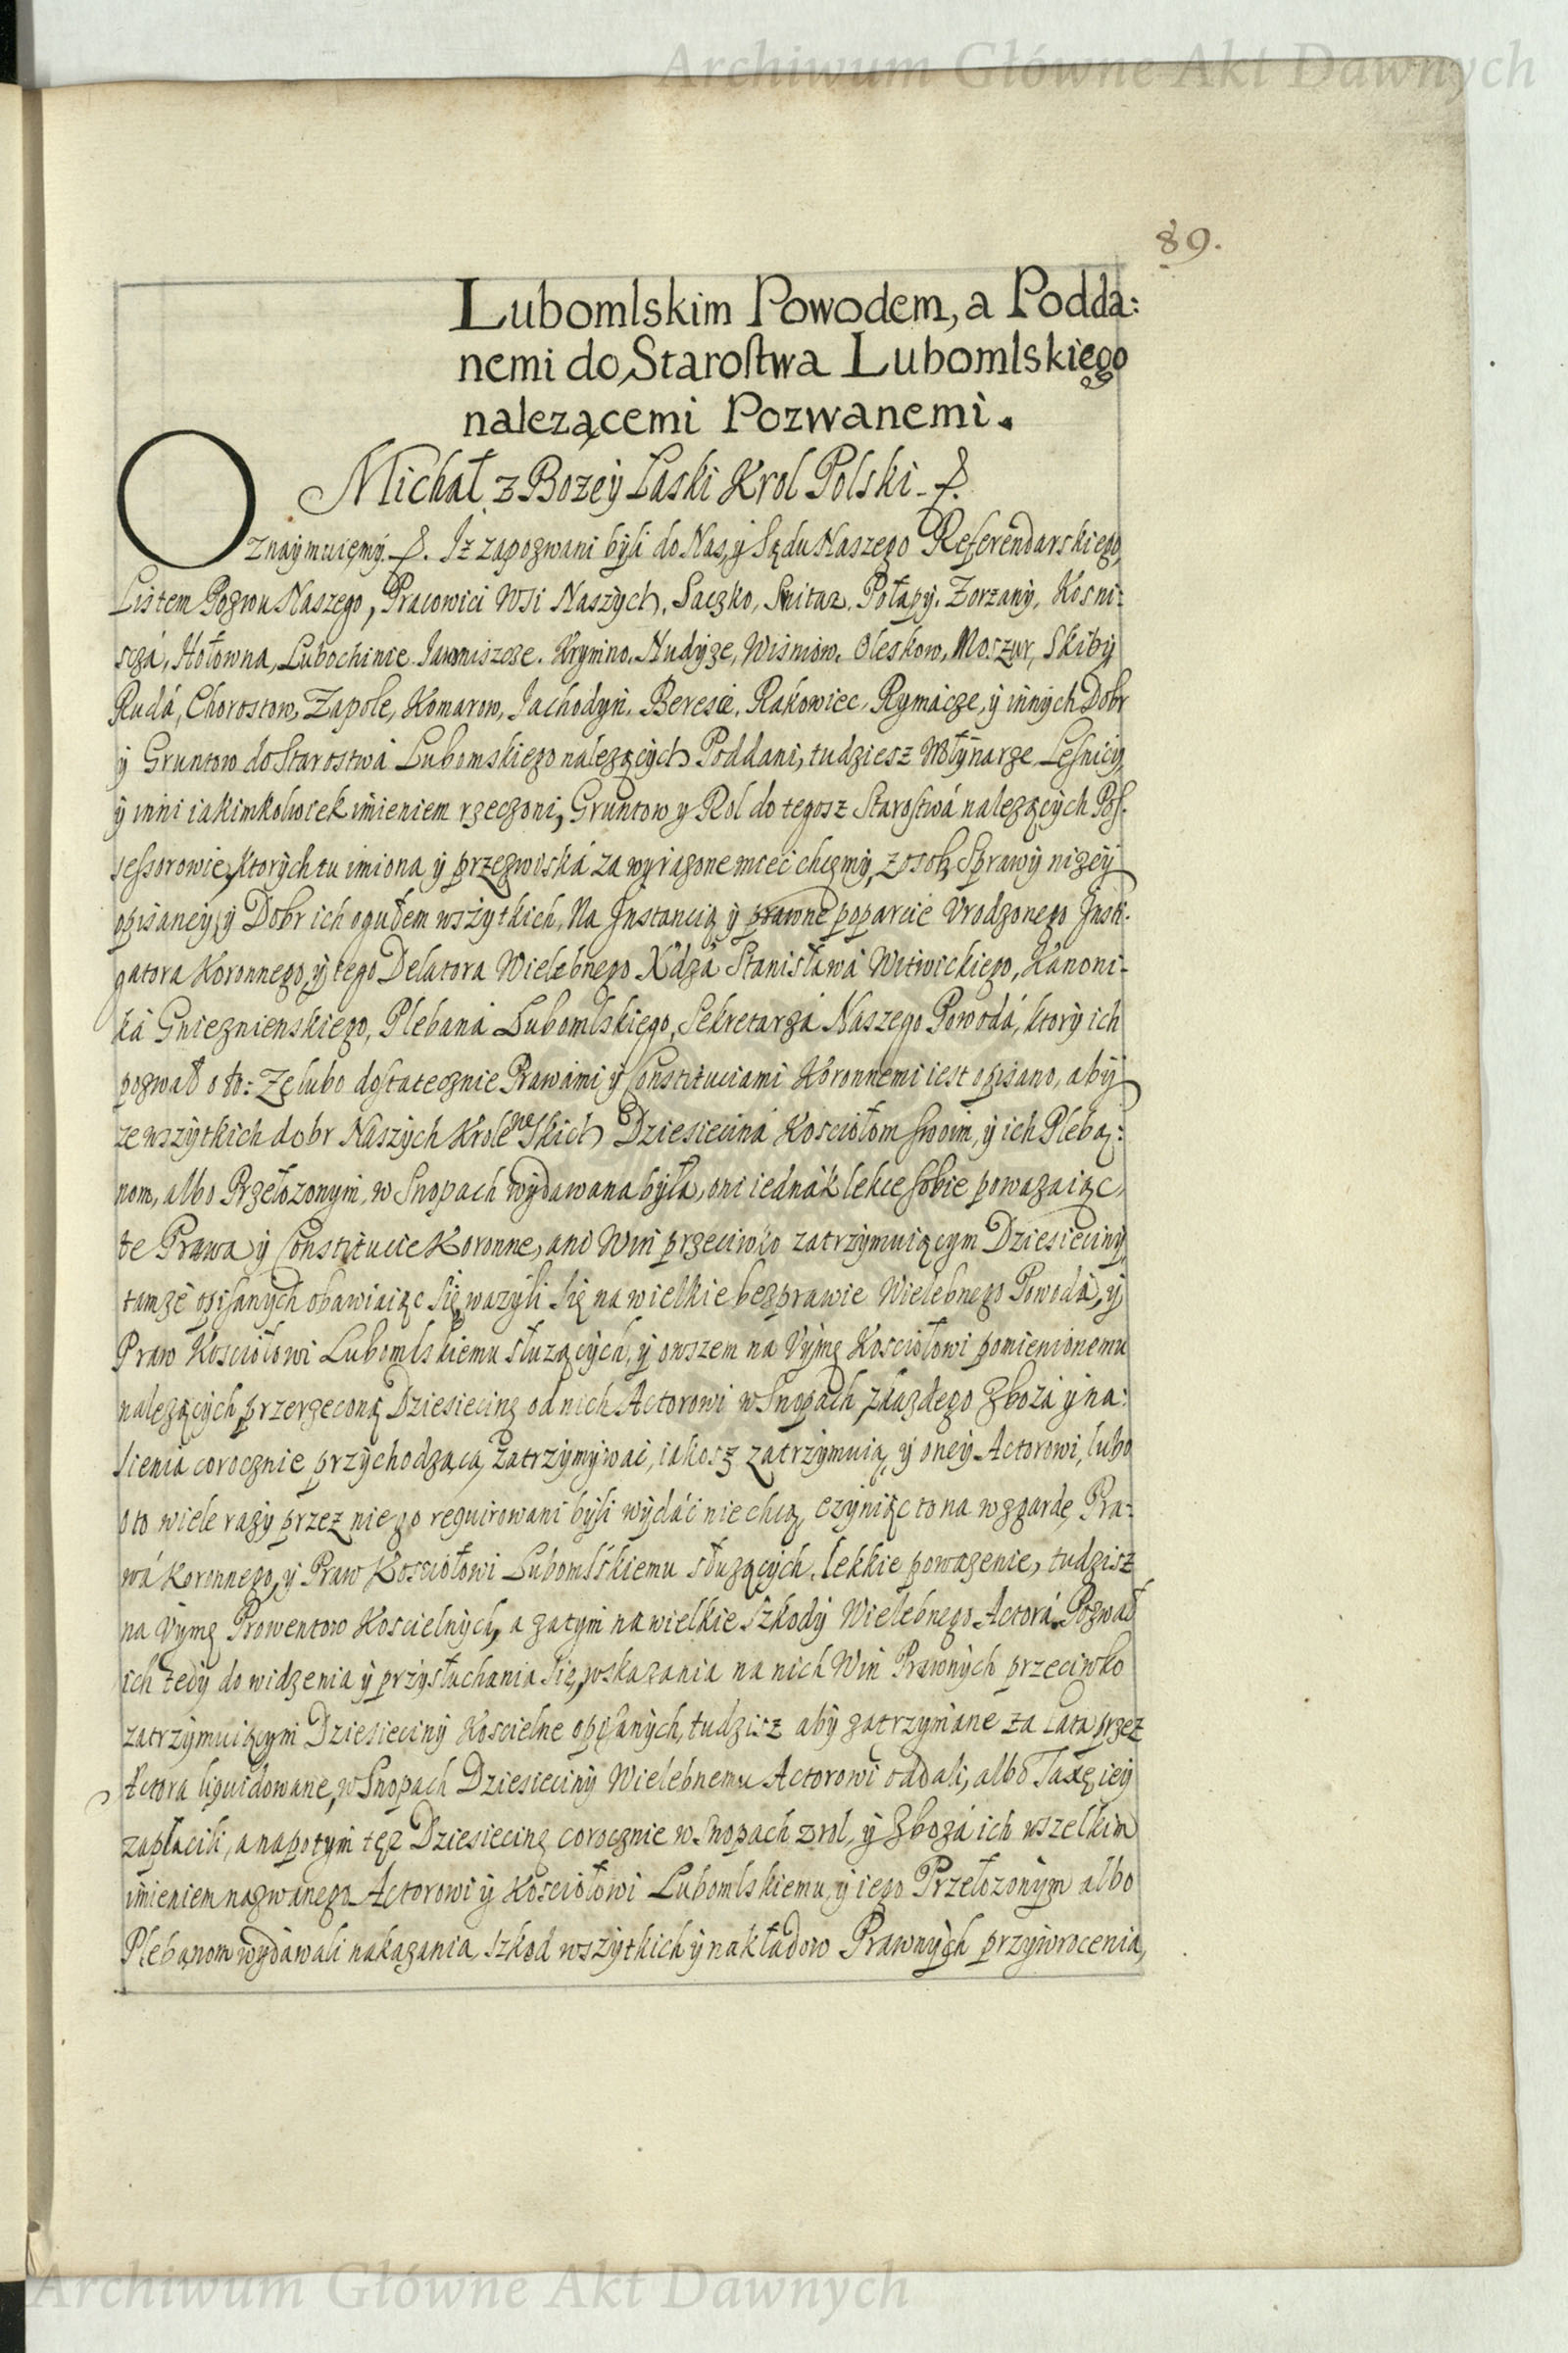 Archiwum Główne Akt Dawnych
89.
Lubomlskim Powodem, a Podda:
nemi do Starostwa Lubomlskiego
nalezącemi Pozwanemi.
Michał z Bozey Łaski Krol Polski
Oznaymuięmÿ. Iz zapozwani bÿli do Nas, ÿ Sądu Naszego Referendarskiego,
Listem Pozwu Naszego, Pracowici Wsi Naszÿch, Saczko, Smitaz, Połapÿ, Zorzanÿ, Kosni:
szcza, Hołowna, Lubochinie, Jawniszcze, Krÿmno, Nudÿze, Wisniow, Oleskow, Moszur, Skibÿ
Ruda, Chorostow, Zapole, Komarow, Jachodÿn, Beresie, Rakowiec, Rÿmácze, ÿ innÿch Dobr
ÿ Gruntow do Starostwá Lubomskiego nalezącÿch Poddani, tudziesz Młÿnarze, Lesnicÿ,
ÿ inni iakimkolwiek imieniem rzeczoni, Gruntow y Rol do tegosz Starostwá nalezącÿch Pos:
sessorowie, ktorÿch tu imiona ÿ przezwiská za wÿrazone miec chcęmÿ, z osob, Sprawÿ nizeÿ
opisaneÿ, ÿ Dobr ich ogułem wszÿtkich, Na Instancią ÿ prawne poparcie Vrodzonego Insti:
gatora Koronnego, ÿ tego Delatora Wielebnego Xdzá Stanisławá Witwickiego, Kanoni:
ká Gnieznienskiego, Plebaná Lubomlskiego, Sekretarzá Naszego Powodá, ktorÿ ich
pozwał o to: Ze lubo dostatecznie Prawámi ÿ Constituciami Koronnemi iest opisano, abÿ
ze wszÿtkich dobr Naszÿch Krolewskich Dziesieciná Kosciołom swoim, ÿ ich Pleba:
nom, albo Przełozonÿm, w Snopach wÿdawana bÿła, oni iednák lekce sobie powazaiąc
te Prawa ÿ Constitucie Koronne, ani Win przeciwko zatrzÿmuiącÿm Dziesiecinÿ,
tamze opisanÿch obawiaiąc się, wazÿli się na wielkie bezprawie Wielebnego Powodá, ÿ
Praw Kosciołowi Lubomlskiemu słuzącÿch, ÿ owszem na Vÿmę Kosciołowi pomienionemu
nalezącÿch przerzeconą Dziesiecinę od nich Actorowi w Snopach z kazdego Zboza ÿ na:
sienia corocznie przÿchodzącą zatrzÿmÿwać, iakosz zatrzÿmuią, ÿ oneÿ Actorowi, lubo
o to wiele razÿ przez niego requirowani bÿli wÿdáć nie chcą, czÿniąc to na wzgardę Pra:
wá Koronnego, ÿ Praw Kosciołowi Lubomlskiemu słuzącÿch, lekkie powazenie, tudzisz
na Vÿmę Prowentow Koscielnÿch, a zatÿm na wielkie szkodÿ Wielebnego Actorá. Pozwał
ich tedÿ do widzenia ÿ przÿsłuchania się, wskazania na nich Win Prawnÿch przeciwko
zatrzÿmuiącÿm Dziesiecinÿ Koscielne opisanÿch, tudzisz abÿ zatrzÿmane za Lata przez
Actora liquidowane, w Snopach Dziesiecinÿ Wielebnemu Actorowi oddali, albo Taxę ieÿ
zapłacili, a napotÿm tęz Dziesiecinę corocznie w Snopach z rol, ÿ Zbozá ich wszelkim
imieniem nazwanego Actorowi ÿ Kosciołowi Lubomlskiemu, ÿ iego Przełozonÿm albo
Plebanom wÿdáwali nakazania, szkod wszÿtkich ÿ nakładow Prawnÿch przÿwrocenia,
Archiwum Główne Akt Dawnych